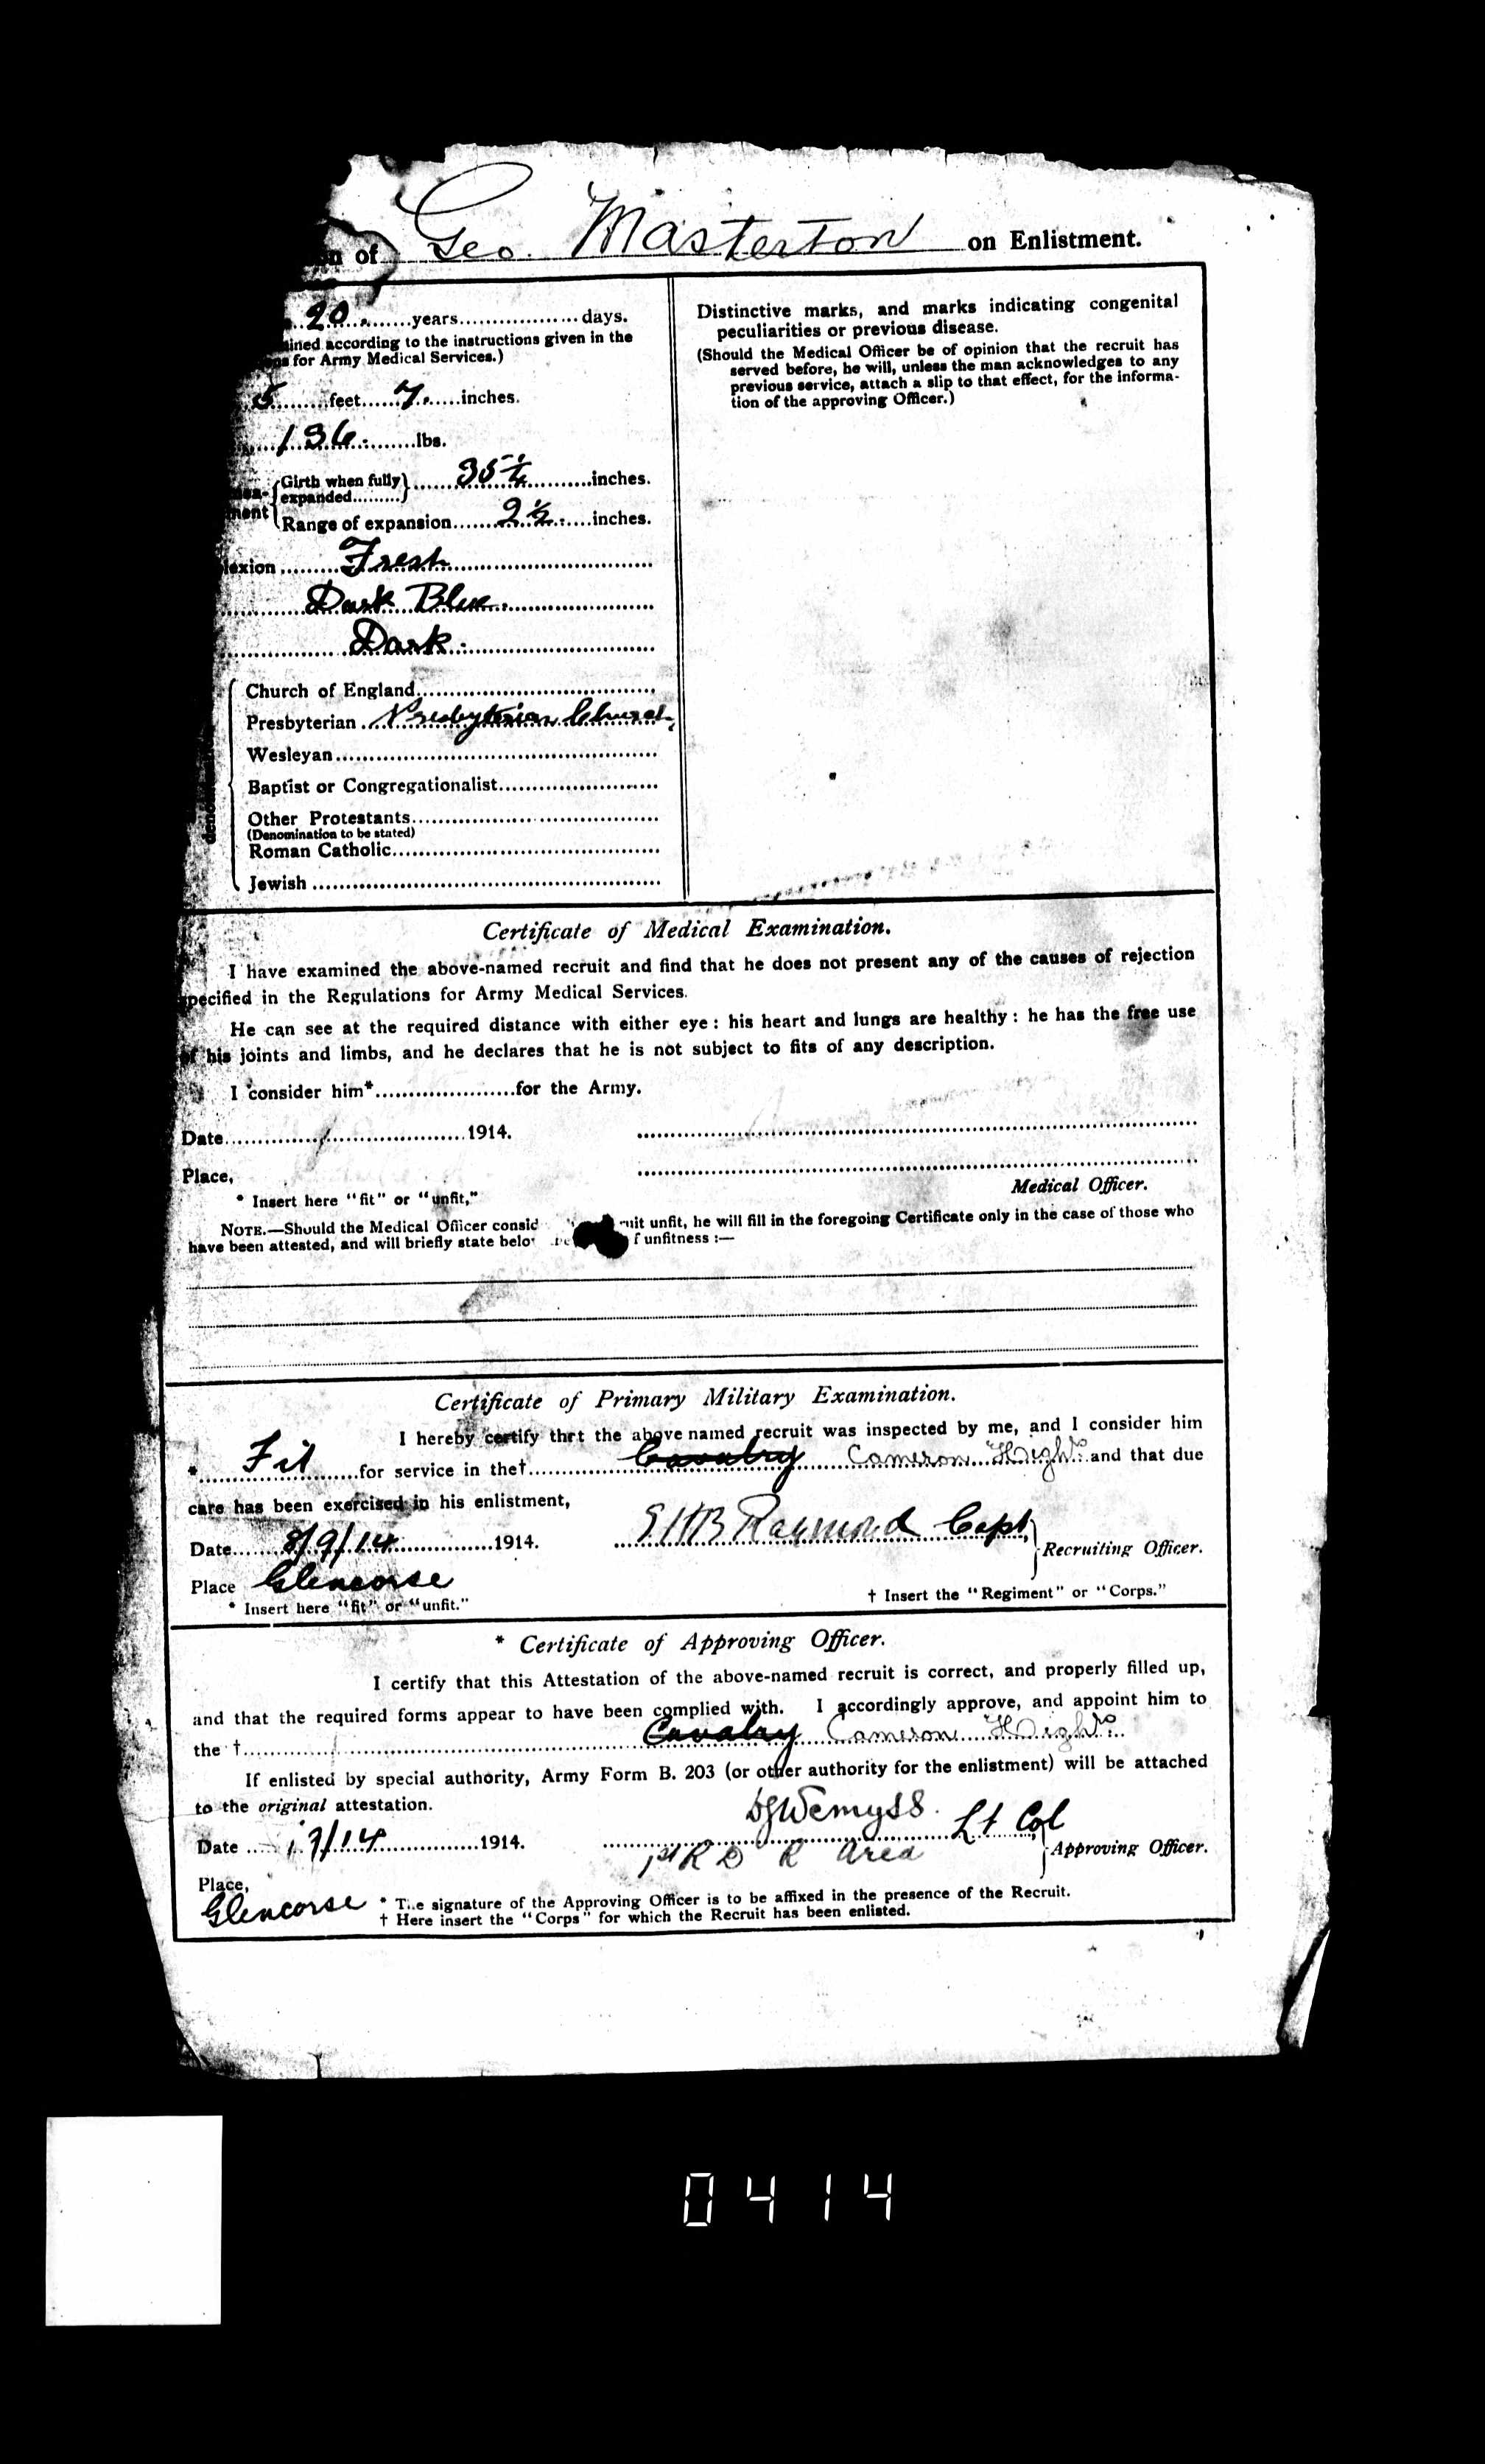 of Geo. Masterton on Enlistment.
20 years days.
according to the instructions given in the
for Army Medical Services.)
5 feet 7 inches.
136 lbs.
Girth when fully expanded 35 1/4 inches.
Range of expansion 2 1/2 inches.
Fresh
Dark Blue
Dark
Church of England
Presbyterian Presbyterian Church
Wesleyan
Baptist or Congregationalist
Other Protestants
(Denomination to be stated)
Roman Catholic
Jewish
Distinctive marks, and marks indicating congenital
peculiarities or previous disease.
(Should the Medical Officer be of opinion that the recruit has
served before, he will, unless the man acknowledges to any
previous service, attach a slip to that effect, for the informa-
tion of the approving Officer.)
Certificate of Medical Examination.
I have examined the above-named recruit and find that he does not present any of the causes of rejection
specified in the Regulations for Army Medical Services.
He can see at the required distance with either eye: his heart and lungs are healthy: he has the free use
of his joints and limbs, and he declares that he is not subject to fits of any description.
I consider him* for the Army.
Date 1914.
Place,
Medical Officer.
* Insert here "fit" or "unfit,"
NOTE.—Should the Medical Officer unfit, he will fill in the foregoing Certificate only in the case of those who
have been attested, and will briefly state unfitness :—
Certificate of Primary Military Examination.
I hereby certify that the above named recruit was inspected by me, and I consider him
* Fit for service in the† Cavalry Cameron Highrs and that due
care has been exercised in his enlistment,
Date 8/9/14 1914. Raymond Capt Recruiting Officer.
Place Glencorse
* Insert here "fit" or "unfit." † Insert the "Regiment" or "Corps."
* Certificate of Approving Officer.
I certify that this Attestation of the above-named recruit is correct, and properly filled up,
and that the required forms appear to have been complied with. I accordingly approve, and appoint him to
the † Cavalry Cameron Highrs
If enlisted by special authority, Army Form B. 203 (or other authority for the enlistment) will be attached
to the original attestation.
Wemyss Lt Col
Date 1914. Approving Officer.
Area
Place,
Glencorse
* The signature of the Approving Officer is to be affixed in the presence of the Recruit.
† Here insert the "Corps" for which the Recruit has been enlisted.
0414